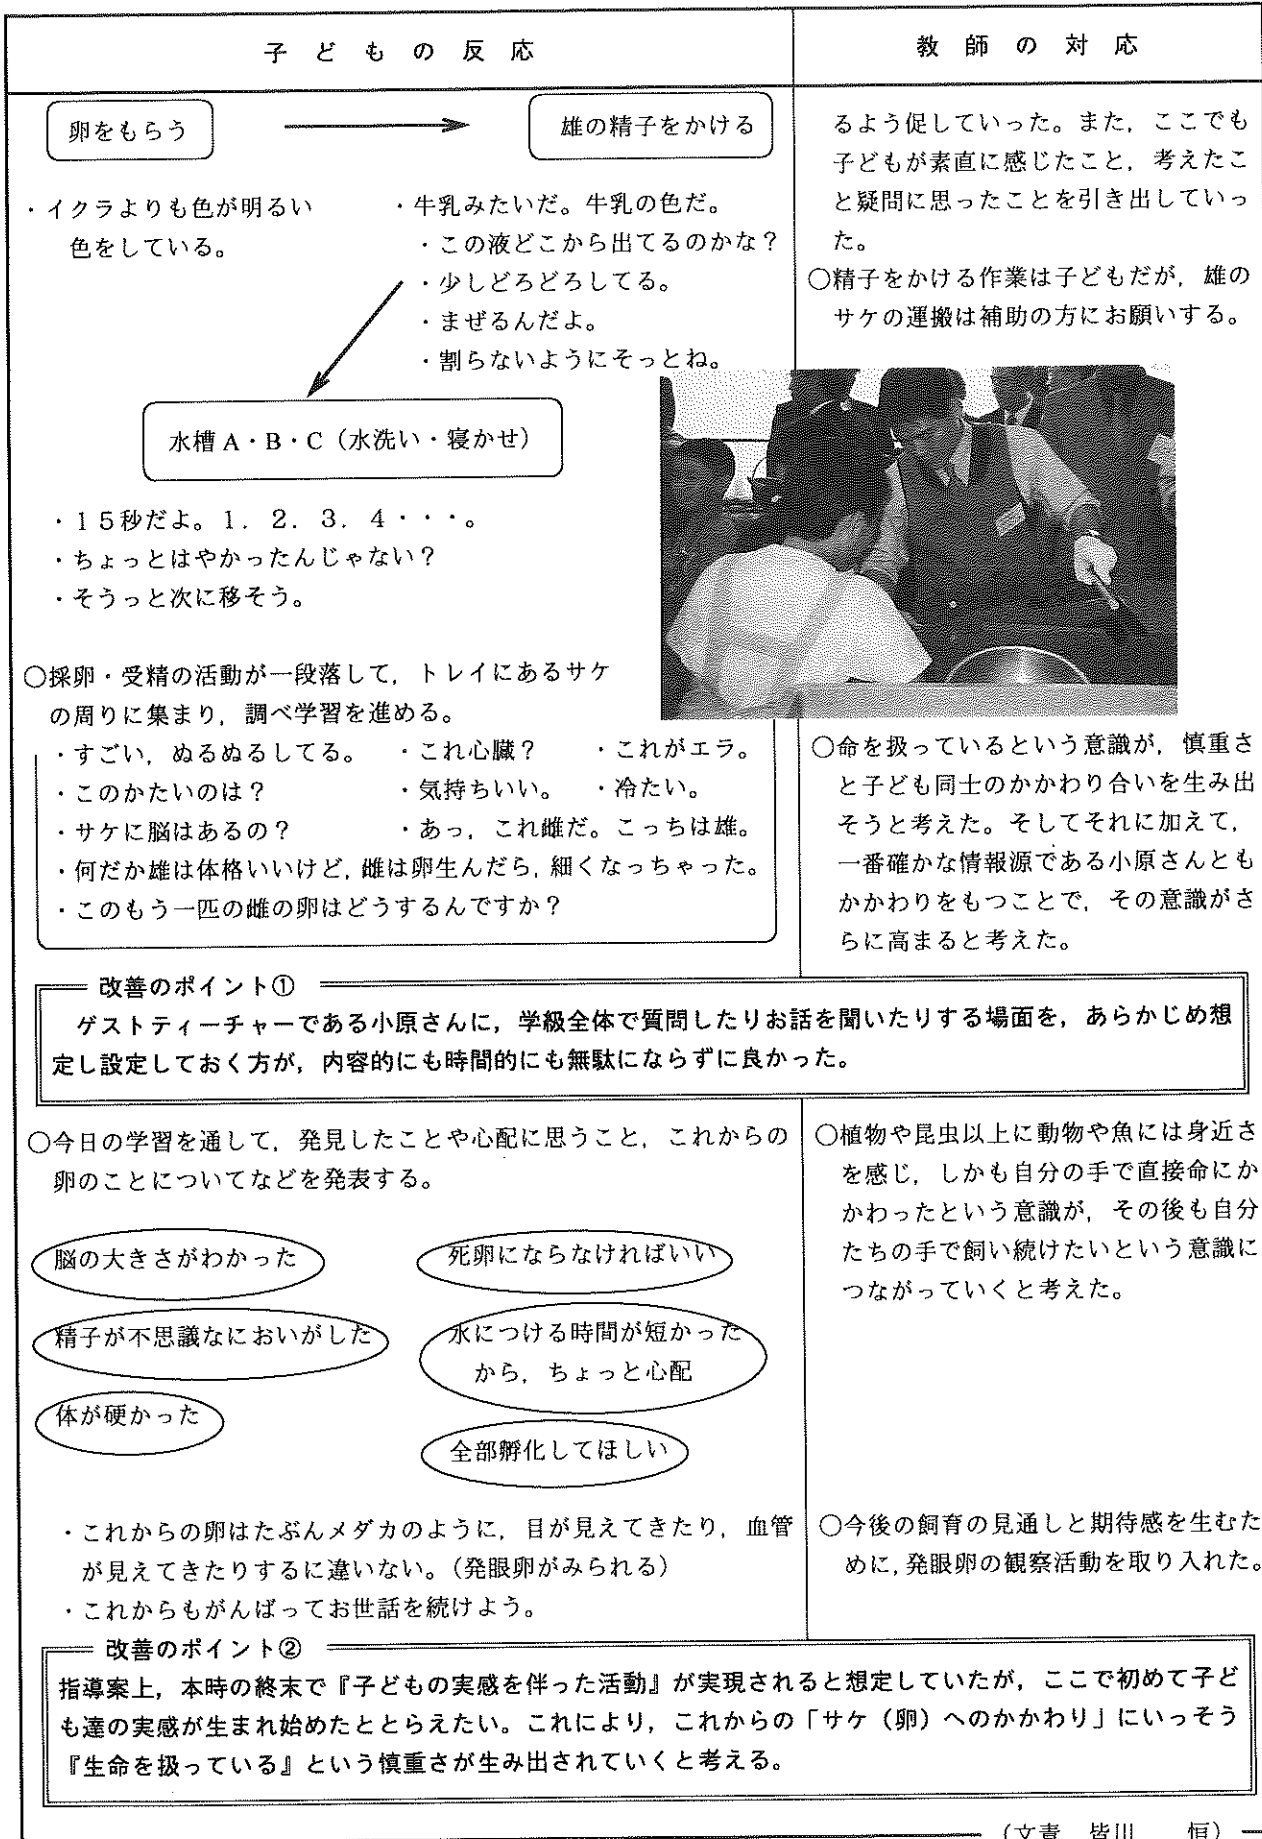 子どもの反応
教師の対応
卵をもらう
雄の精子をかける
・イクラよりも色が明るい
色をしている。
・牛乳みたいだ。牛乳の色だ。
・この液どこから出てるのかな？
・少しどろどろしてる。
・まぜるんだよ。
・割らないようにそっとね。
水槽A・B・C（水洗い・寝かせ）
・１５秒だよ。１．２．３．４・・・。
・ちょっとはやかったんじゃない？
・そうっと次に移そう。
るよう促していった。また，ここでも
子どもが素直に感じたこと，考えたこ
と疑問に思ったことを引き出していっ
た。
○精子をかける作業は子どもだが，雄の
サケの運搬は補助の方にお願いする。
○採卵・受精の活動が一段落して，トレイにあるサケ
の周りに集まり，調べ学習を進める。
・すごい，ぬるぬるしてる。　・これ心臓？　・これがエラ。
・このかたいのは？　・気持ちいい。　・冷たい。
・サケに脳はあるの？　・あっ，これ雌だ。こっちは雄。
・何だか雄は体格いいけど，雌は卵生んだら，細くなっちゃった。
・このもう一匹の雌の卵はどうするんですか？
○命を扱っているという意識が，慎重さ
と子ども同士のかかわり合いを生み出
そうと考えた。そしてそれに加えて，
一番確かな情報源である小原さんとも
かかわりをもつことで，その意識がさ
らに高まると考えた。
改善のポイント①
ゲストティーチャーである小原さんに，学級全体で質問したりお話を聞いたりする場面を，あらかじめ想
定し設定しておく方が，内容的にも時間的にも無駄にならずに良かった。
○今日の学習を通して，発見したことや心配に思うこと，これからの
卵のことについてなどを発表する。
脳の大きさがわかった
死卵にならなければいい
精子が不思議なにおいがした
水につける時間が短かった
から，ちょっと心配
体が硬かった
全部孵化してほしい
・これからの卵はたぶんメダカのように，目が見えてきたり，血管
が見えてきたりするに違いない。（発眼卵がみられる）
・これからもがんばってお世話を続けよう。
○植物や昆虫以上に動物や魚には身近さ
を感じ，しかも自分の手で直接命にか
かわったという意識が，その後も自分
たちの手で飼い続けたいという意識に
つながっていくと考えた。
○今後の飼育の見通しと期待感を生むた
めに，発眼卵の観察活動を取り入れた。
改善のポイント②
指導案上，本時の終末で『子どもの実感を伴った活動』が実現されると想定していたが，ここで初めて子ど
も達の実感が生まれ始めたととらえたい。これにより，これからの「サケ（卵）へのかかわり」にいっそう
『生命を扱っている』という慎重さが生み出されていくと考える。
（文責　皆川　恒）